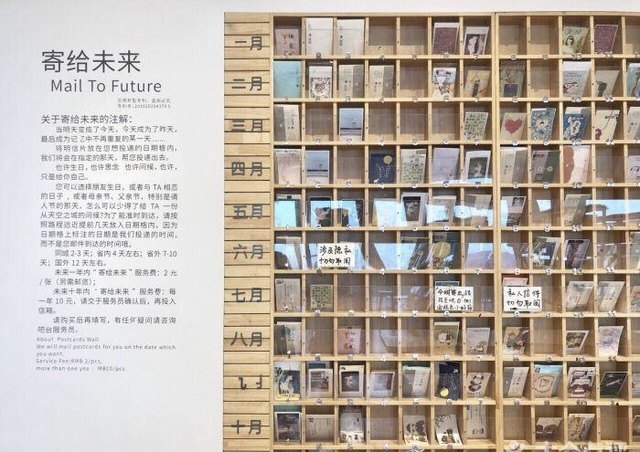 寄给未来
Mail To Future
关于寄给未来的注解:
当明天变成了今天,今天成为了昨天,
最后成为记忆中不再重复的某一天……
将明信片放在您想投递的日期格内,
我们将会在指定的那天,帮您投递出去。
也许生日,也许思念 也许问候,也许,
只是给你自己。
您可以选择朋友生日,或者与 TA 相恋
的日子,或者母亲节、父亲节,特别是情
人节的那天,怎么可以少得了给 TA 一份
从天空之城的问候?为了能准时到达,请按
照路程远近提前几天放入日期格内,因为
日期格上标注的日期是我们投递的时间,
而不是您邮件到达的时间哦。
同城 2-3 天;省内 4 天左右;省外 7-10
天;国外 12 天左右。
未来一年内"寄给未来"服务费:2 元
/ 张(另需邮资);
未来十年内"寄给未来"服务费:每
一年 10 元,请交于服务员确认后,再投入
信箱。
请购买后再填写,有任何疑问请咨询
吧台服务员。
About Postcards Wall
We will mail postcards for you on the date which
you want.
Service Fee:RMB 2/pcs,
more than one yea MB10/pcs
一月
二月
三月
四月
五月
六月
七月
八月
十月
涉及隐私
切勿取阅
私人信件
切勿取阅